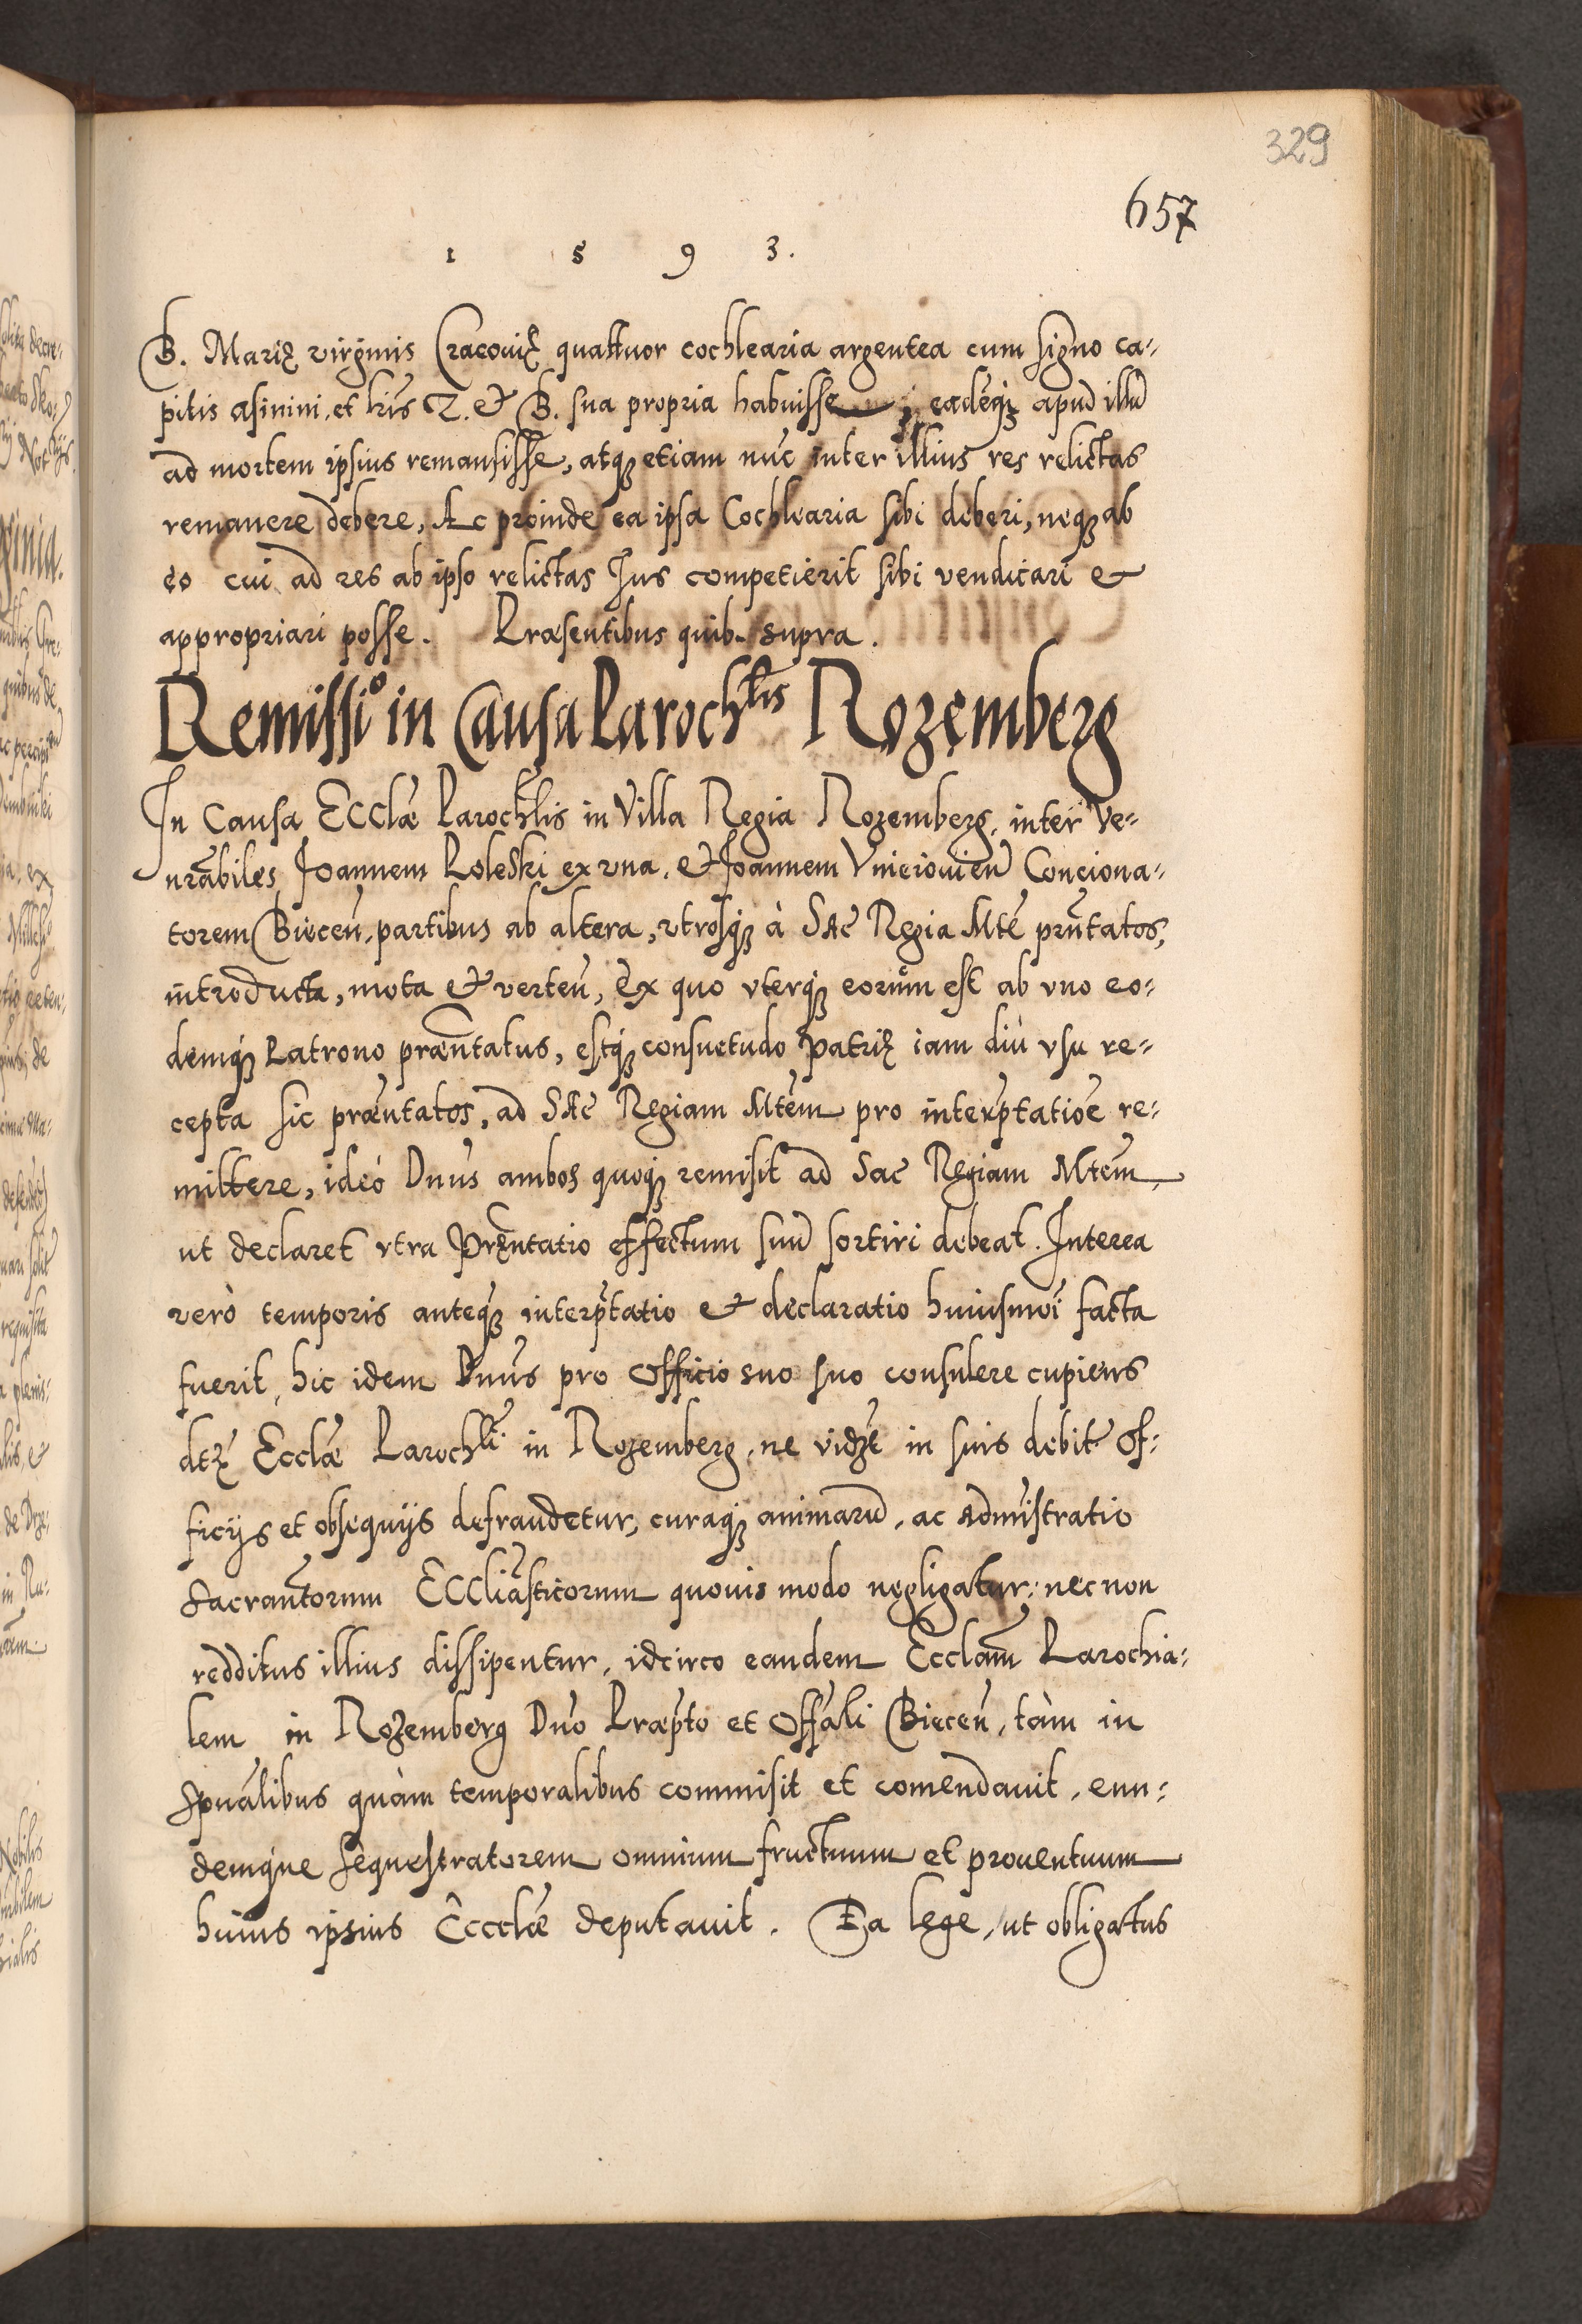 329
657
1593.
B. Marię virginis Cracouię quattuor cochlearia argentea cum signo ca-
pitis asinini, et lris T. et B. sua propria habuisse, eadēq; apud illū
ad mortem ipsius remansisse, atq; etiam nūc inter illius res relictas
remanere debere, Ac proinde ea ipsa Cochlearia sibi deberi, neq; ab
eo cui ad res ab ipso relictas Jus competierit sibi vendicari et
appropriari posse. Præsentibus quib. supra.
Remissio in Causa Parochlis Rozęmberg
In Causa Ecclæ Parochlis in Villa Regia Rozemberg, inter Ve-
nrābiles Joannem Poleski ex vna, et Joannem Vnieiouień Conciona-
torem Biecen̄, partibus ab altera, vtrosq; à Sac Regia Mte prn̄tatos,
introducta, mota et verten̄, Ex quo vterq; eorum est ab vno eo-
demq; Patrono præn̄tatus, estq; consuetudo Patrię iam diù vsu re-
cepta sic præn̄tatos, ad Sac Regiam Mtēm pro interp̄tatiōe re-
mittere, ideò Dnūs ambos quoq; remisit ad Sac Regiam Mtēm,
ut declaret vtra Præn̄tatio effectum suū sortiri debeat. Interea
verò temporis anteq; interp̄tatio et declaratio huiusmōi facta
fuerit, hic idem Dnūs pro Officio suo suo consulere cupiens
dtę Ecclæ Parochli in Rozemberg, ne vidze in suis debit Of-
ficijs et obsequijs defraudetur, curaq; animarū, ac Admīstratio
Sacramn̄torum Eccliāsticorum quouis modo negligatur: nec non
redditus illius dissipentur, idcirco eandem Ecclam̄ Parochia-
lem in Rozemberg Dn̄o Præp̄to et Offāli Biecen̄, tàm in
Spuālibus quàm temporalibus commisit et comendauit, eun-
demque sequestratorem omnium fructuum et prouentuum
huius ipsius Ecclæ deputauit. Ea lege, ut obligatus